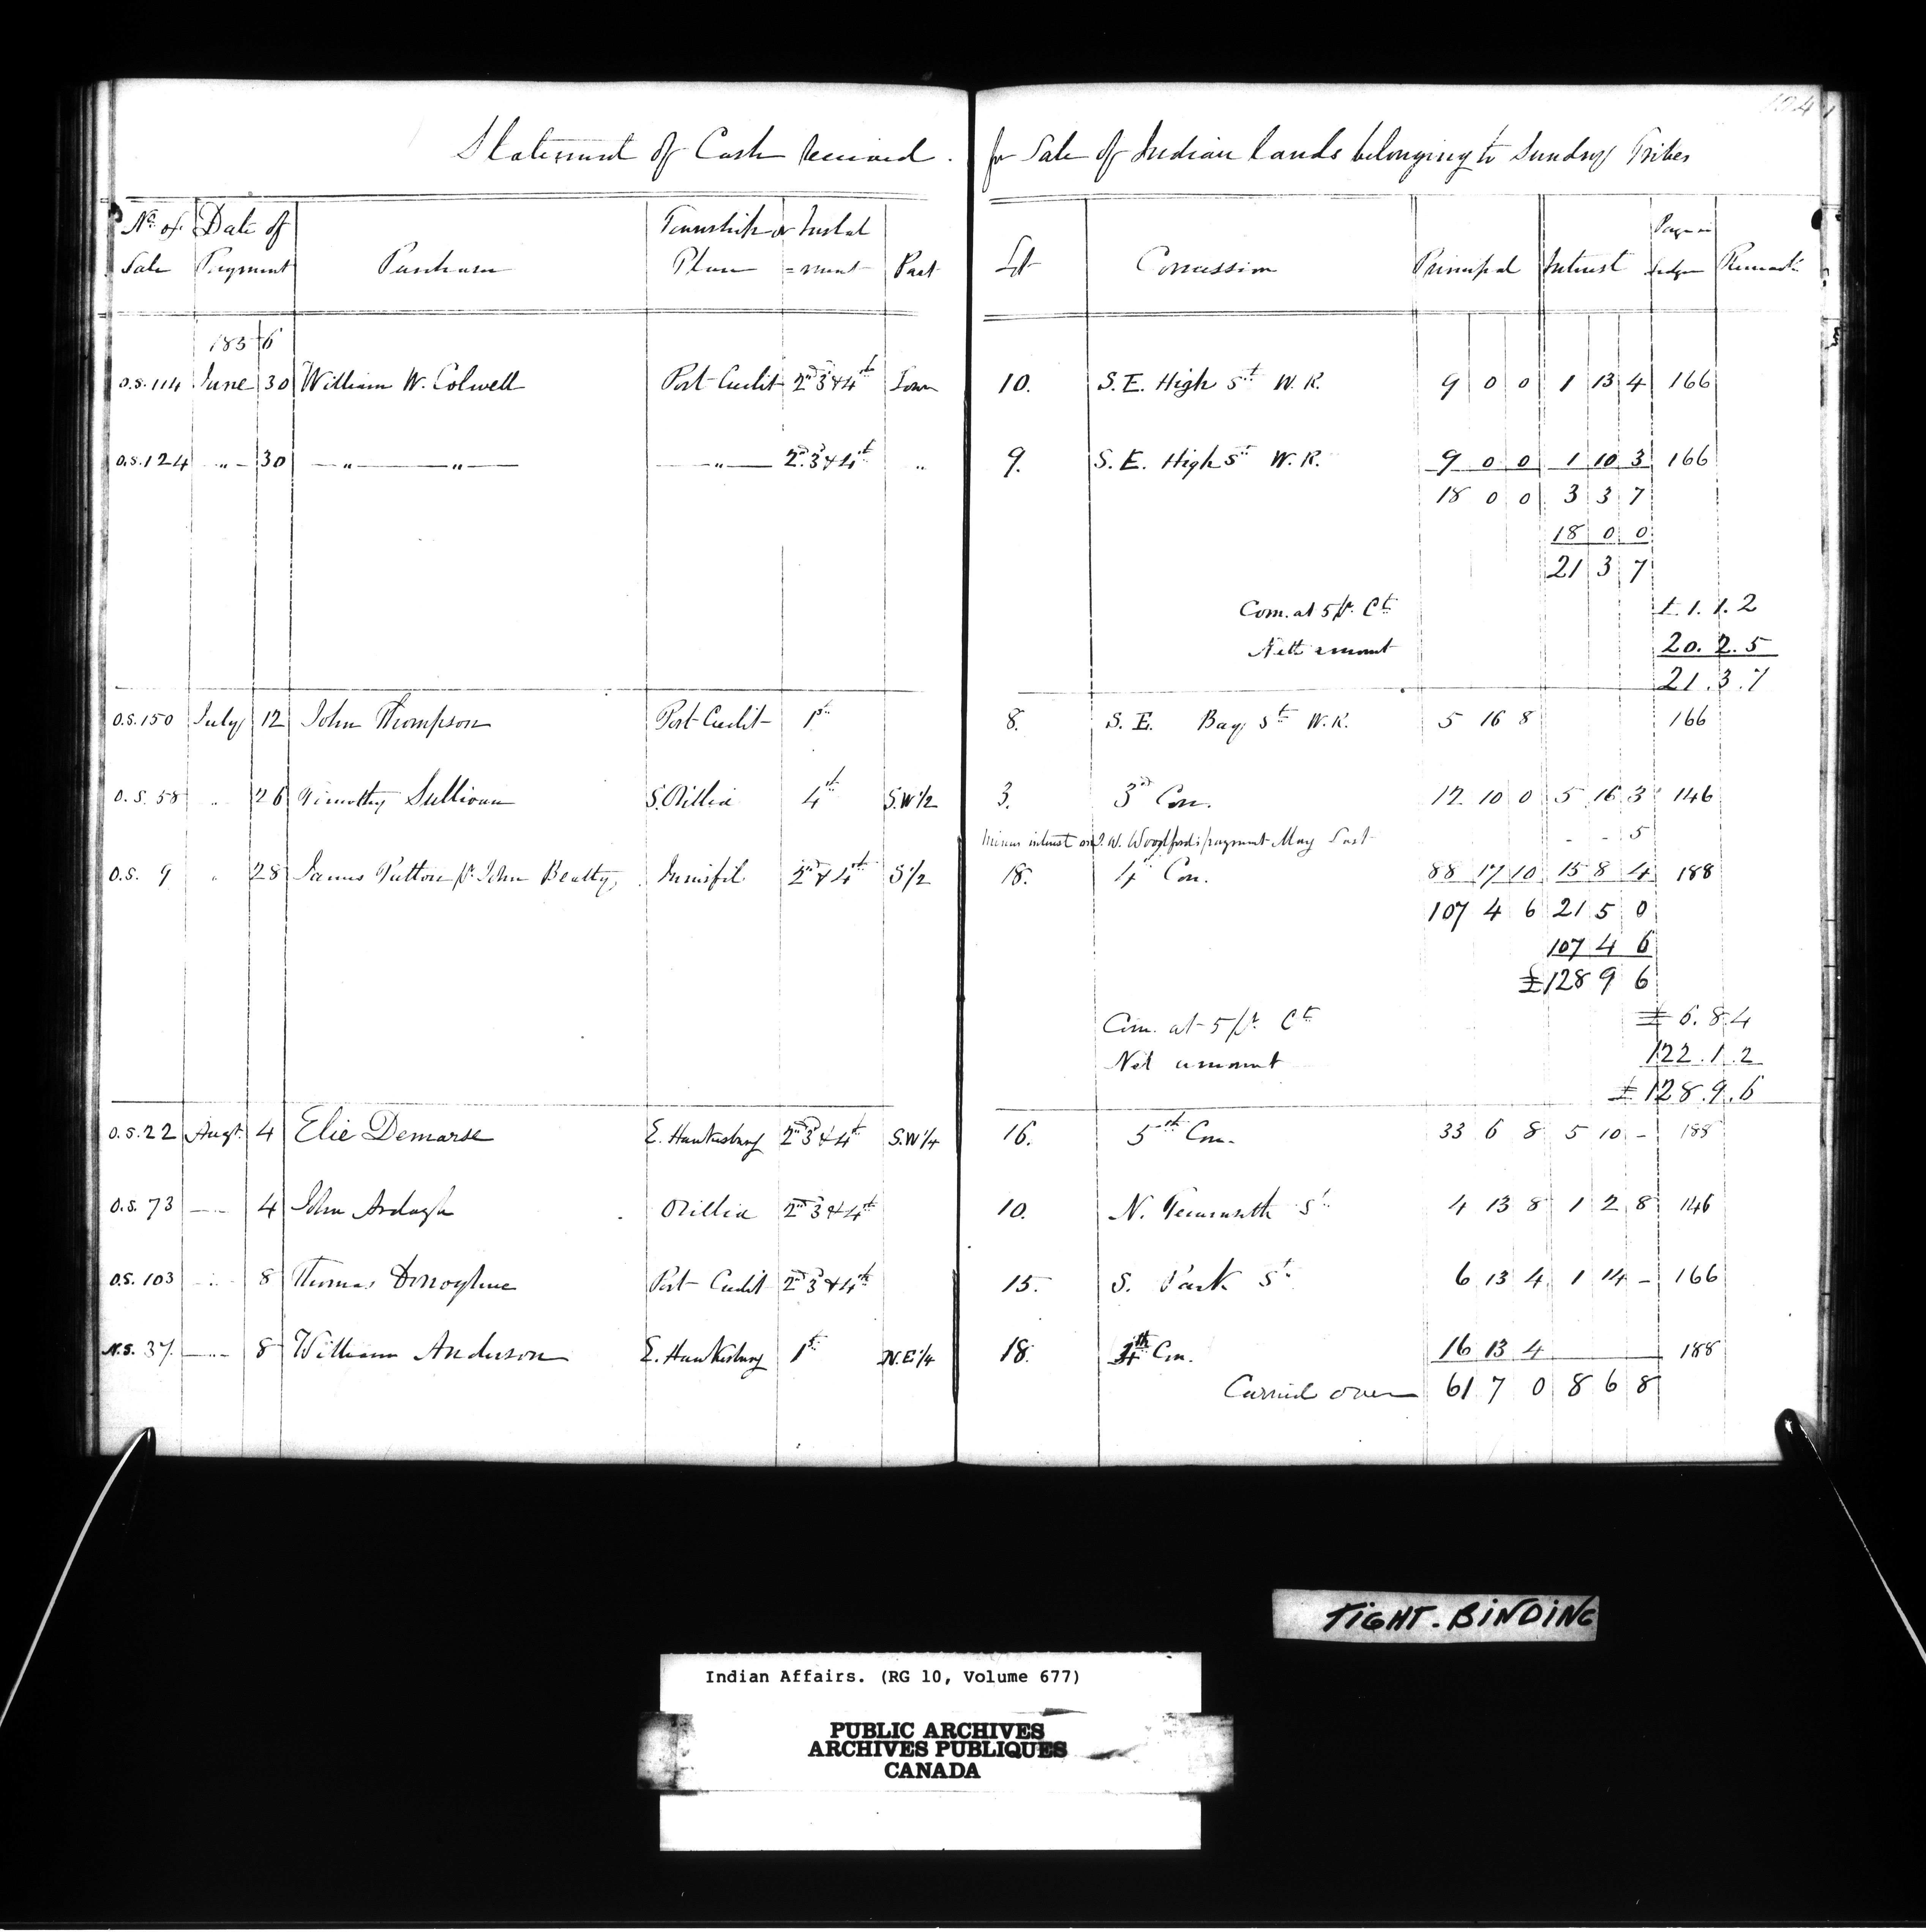 104
Statement of Cash received. for Sale of Indian lands belonging to Sundry Tribes
No. of Sale Date of Payment Purchaser Township or Plan Instal=ment Part Lot Concession Principal Interest Page in Ledger Remarks
1856
O.S. 114 June 30 William W. Colwell Port Credit 2nd 3d & 4th Town 10. S.E. High St W.R. 9 0 0 1 13 4 166
O.S. 124 " 30 " " " 2nd 3d & 4th " 9. S.E. High St W.R. 9 0 0 1 10 3 166
18 0 0 3 3 7
18 0 0
21 3 7
Com. at 5 pr. Ct £1.1.2
Nett amount 20.2.5
21.3.7
O.S. 150 July 12 John Thompson Port Credit 1st 8. S.E. Bay St W.R. 5 16 8 166
O.S. 58 " 26 Timothy Sullivan S. Orillia 4th S.W 1/2 3. 3rd Con. 12 10 0 5 16 3 146
Minus interest on J.W. Woodford's payment May Last - - 5
O.S. 9 " 28 James Patton pr. John Beatty, Innisfil 2nd & 4th S 1/2 18. 4th Con. 88 17 10 15 8 4 188
107 4 6 21 5 0
107 4 6
£128 9 6
Com. at 5 pr. Ct £6.8.4
Net amount 122.1.2
£128.9.6
O.S. 22 Augt. 4 Elie Demarse E. Hawkesbury 2nd 3d & 4th S.W 1/4 16. 5th Con. 33 6 8 5 10 - 188
O.S. 73 " 4 John Ardagh Orillia 2nd 3d & 4th 10. N. St 4 13 8 1 2 8 146
O.S. 103 " 8 Thomas Donoghue Port Credit 2nd 3d & 4th 15. S. Park St 6 13 4 1 14 - 166
N.S. 37. " 8 William Anderson E. Hawkesbury 1st N.E 1/4 18. 4th Con. 16 13 4 188
Carried over 61 7 0 8 6 8
TIGHT-BINDING
Indian Affairs. (RG 10, Volume 677)
PUBLIC ARCHIVES
ARCHIVES PUBLIQUES
CANADA